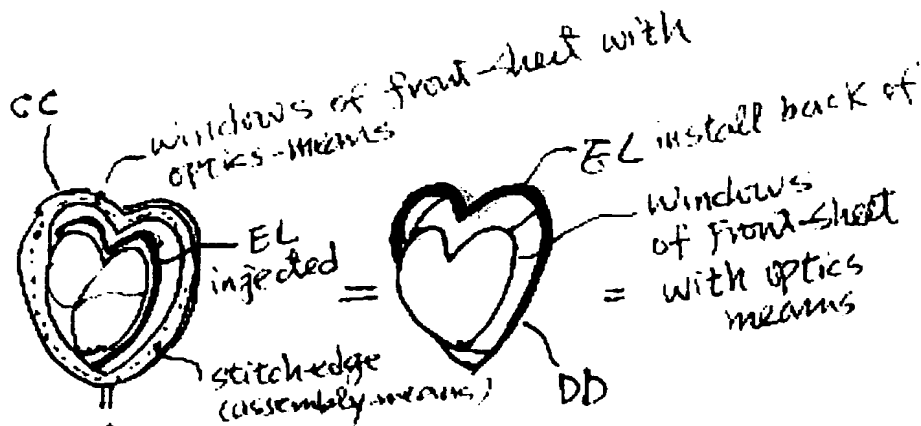 CC
windows of front-sheet with
optics-means
EL
injected
=
stitch-edge
(assembly-means)
EL install back of
windows
of front-sheet
= with optics
means
DD